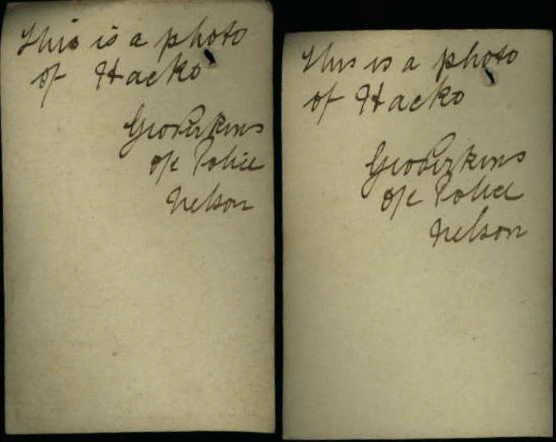 This is a photo
of Hacko
Geo Pirkins
o/c Police
Nelson
This is a photo
of Hacko
Geo Pirkins
o/c Police
Nelson